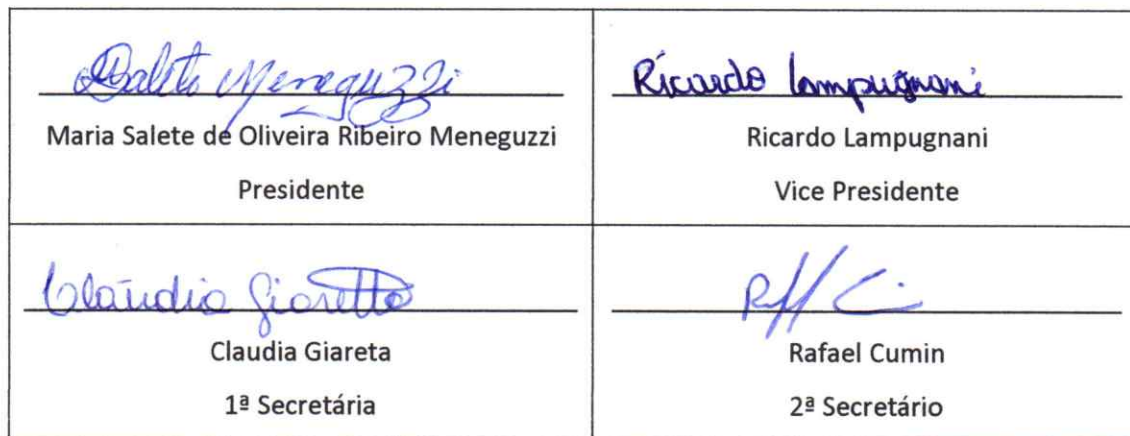 Salete Meneguzzi
Maria Salete de Oliveira Ribeiro Meneguzzi
Presidente
Ricardo Lampugnani
Ricardo Lampugnani
Vice Presidente
Claúdia Giaretta
Claudia Giareta
1ª Secretária
Rafael Cumin
2ª Secretário